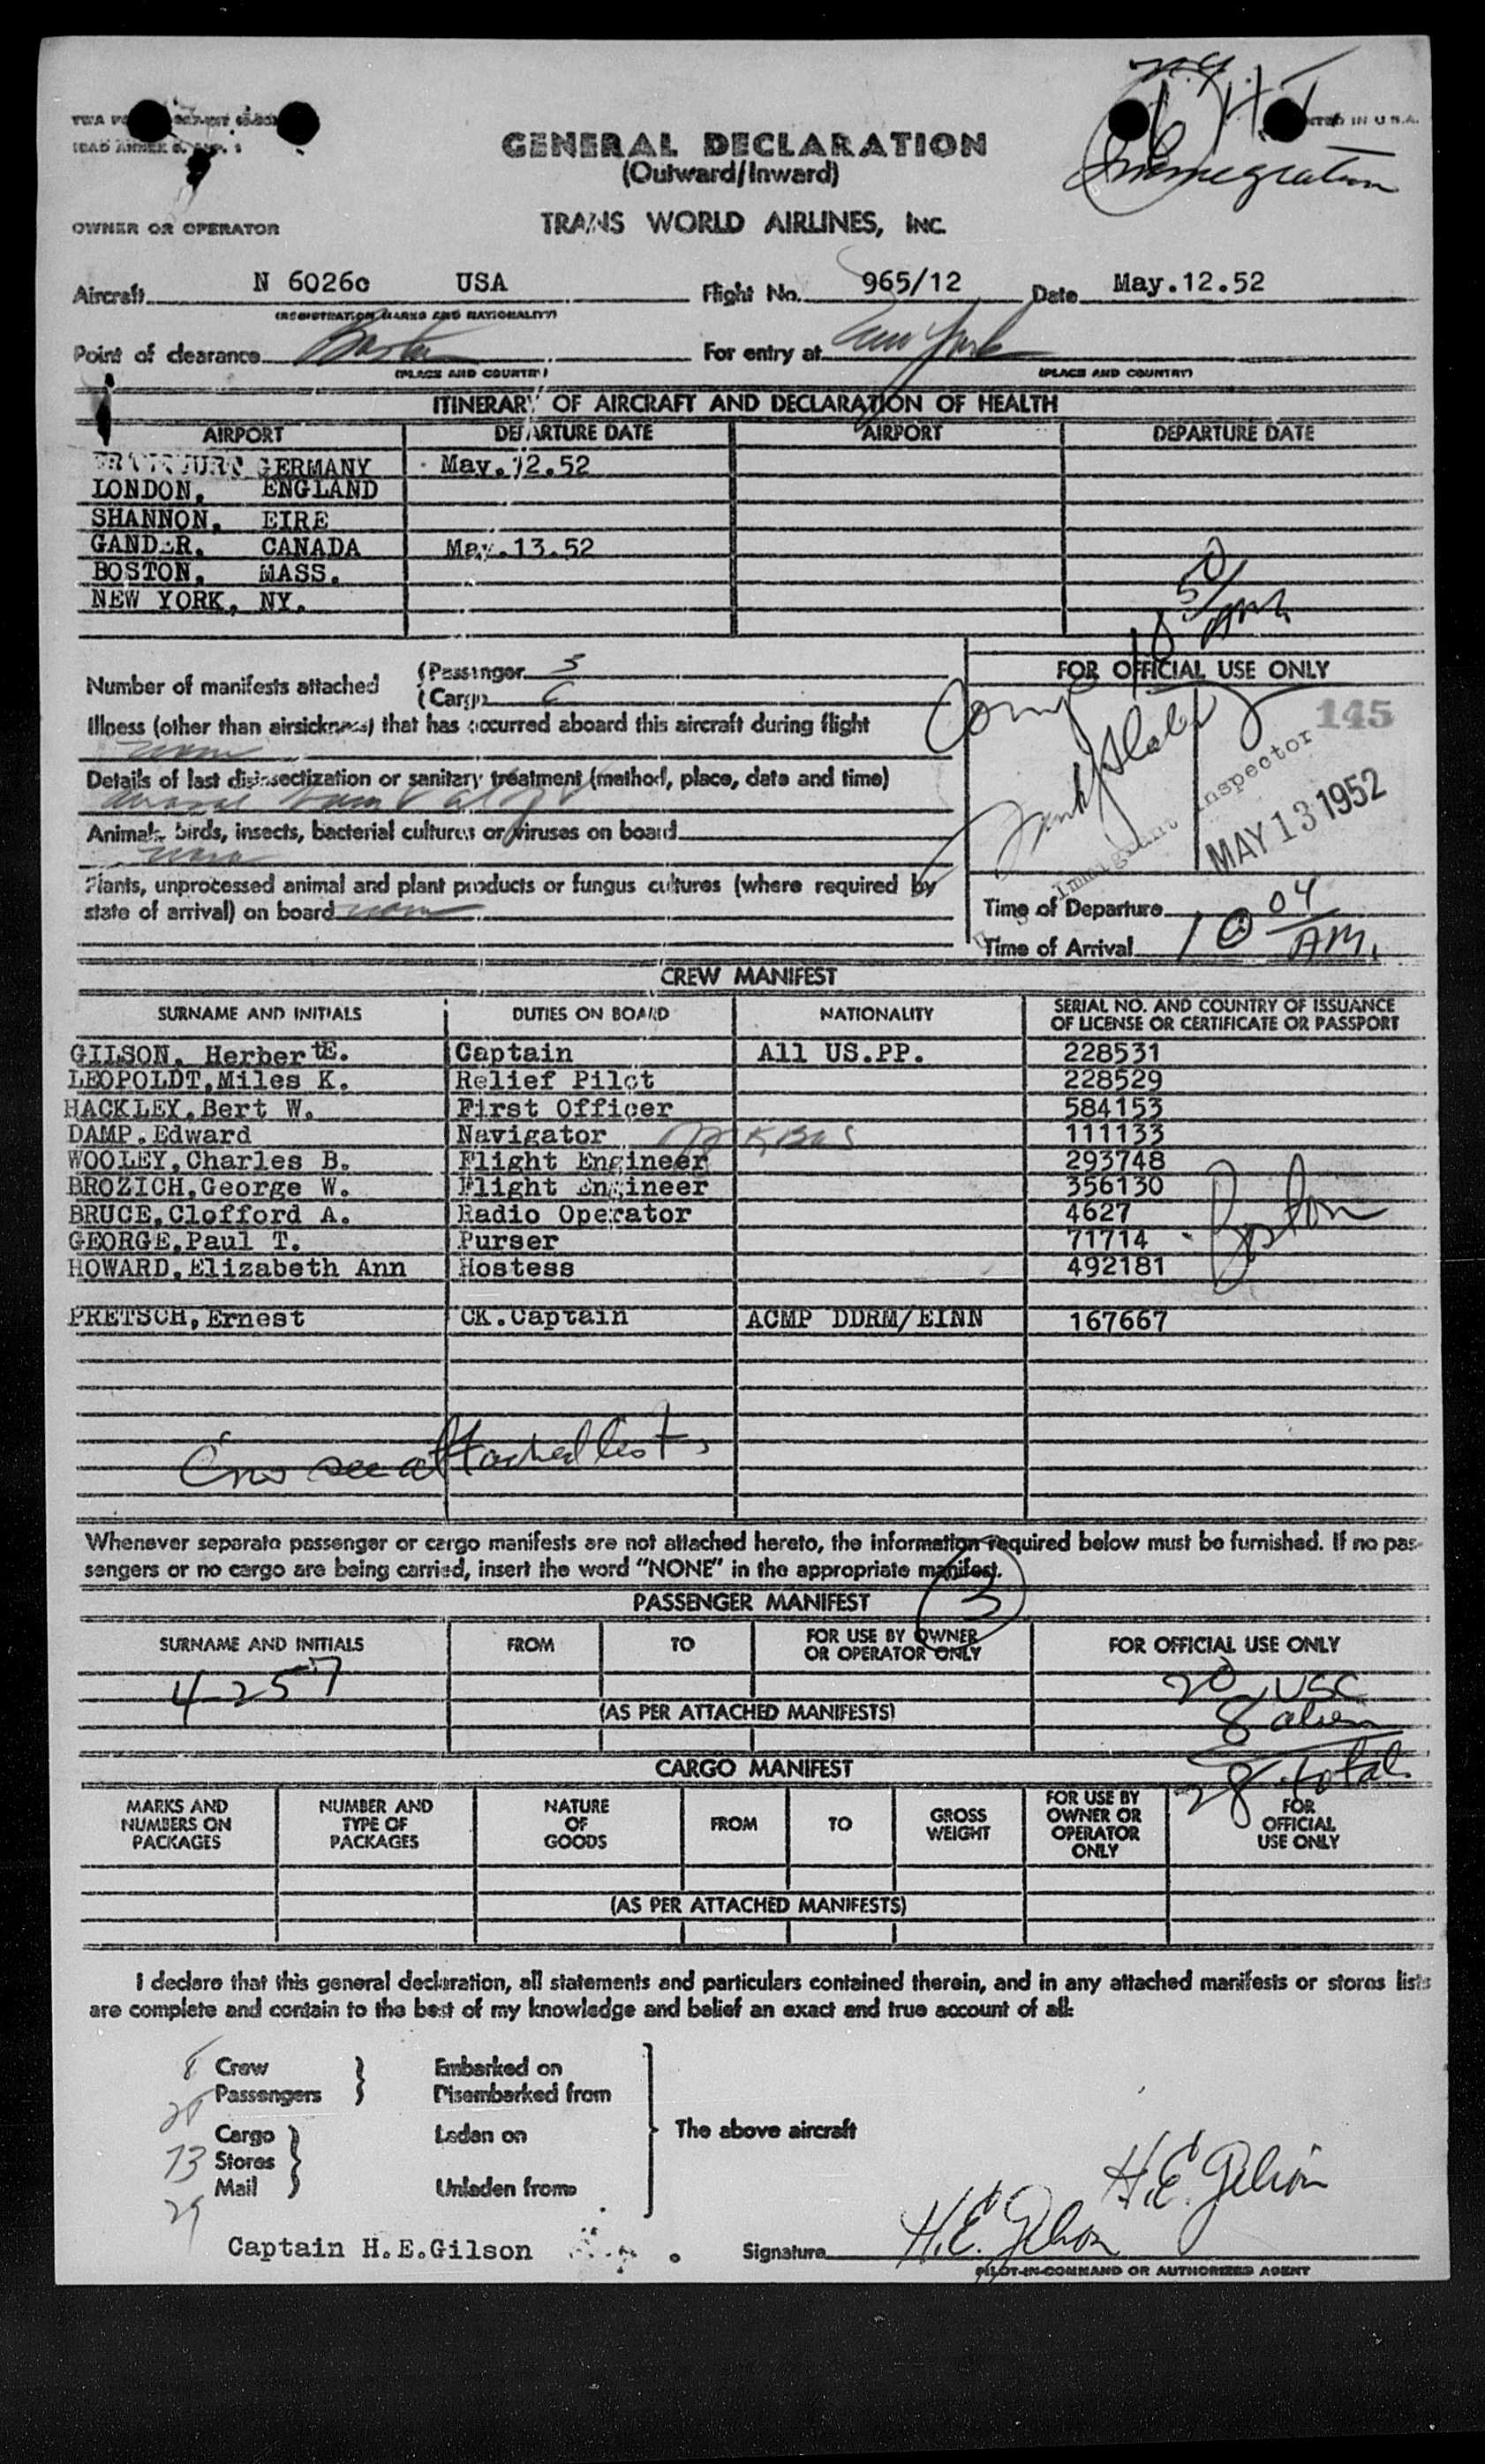 N.Y.
Immigration
GENERAL DECLARATION
(Outward/Inward)
OWNER OR OPERATOR TRANS WORLD AIRLINES, INC.
Aircraft N 6026c USA Flight No. 965/12 Date May.12.52
(REGISTRATION MARKS AND NATIONALITY)
Point of clearance Boston For entry at New York
(PLACE AND COUNTRY) (PLACE AND COUNTRY)
ITINERARY OF AIRCRAFT AND DECLARATION OF HEALTH
AIRPORT DEPARTURE DATE AIRPORT DEPARTURE DATE
GERMANY May.12.52
LONDON, ENGLAND
SHANNON, EIRE
GANDER, CANADA May.13.52
BOSTON, MASS.
NEW YORK, NY.
Number of manifests attached (Passenger 3
(Cargo 6
FOR OFFICIAL USE ONLY
Illness (other than airsickness) that has occurred aboard this aircraft during flight
none
145
Details of last disinsectization or sanitary treatment (method, place, date and time)
Immigrant Inspector
MAY 13 1952
Animals, birds, insects, bacterial cultures or viruses on board
none
Plants, unprocessed animal and plant products or fungus cultures (where required by
state of arrival) on board none
Time of Departure
Time of Arrival 10 04 AM.
CREW MANIFEST
SURNAME AND INITIALS DUTIES ON BOARD NATIONALITY SERIAL NO. AND COUNTRY OF ISSUANCE
OF LICENSE OR CERTIFICATE OR PASSPORT
GILSON, Herbert E. Captain All US.PP. 228531
LEOPOLDT,Miles K. Relief Pilot 228529
HACKLEY,Bert W. First Officer 584153
DAMP.Edward Navigator 111133
WOOLEY,Charles B. Flight Engineer 293748
BROZICH,George W. Flight Engineer 356130
BRUCE,Clofford A. Radio Operator 4627
GEORGE,Paul T. Purser 71714
HOWARD,Elizabeth Ann Hostess 492181
Boston
PRETSCH,Ernest CK.Captain ACMP DDRM/EINN 167667
Crew see attached list
Whenever separate passenger or cargo manifests are not attached hereto, the information required below must be furnished. If no pas-
sengers or no cargo are being carried, insert the word "NONE" in the appropriate manifest.
PASSENGER MANIFEST 3
SURNAME AND INITIALS FROM TO FOR USE BY OWNER
OR OPERATOR ONLY FOR OFFICIAL USE ONLY
4-257 20 USC
(AS PER ATTACHED MANIFESTS) 8 alien
28 total
CARGO MANIFEST
MARKS AND
NUMBERS ON
PACKAGES
NUMBER AND
TYPE OF
PACKAGES
NATURE
OF
GOODS
FROM
TO
GROSS
WEIGHT
FOR USE BY
OWNER OR
OPERATOR
ONLY
FOR
OFFICIAL
USE ONLY
(AS PER ATTACHED MANIFESTS)
I declare that this general declaration, all statements and particulars contained therein, and in any attached manifests or stores lists
are complete and contain to the best of my knowledge and belief an exact and true account of all:
8 Crew Embarked on
Passengers Disembarked from
Cargo Laden on The above aircraft
73 Stores
Mail Unladen from
29
H.E. Gilson
Captain H.E.Gilson Signature H.E. Gilson
PILOT-IN-COMMAND OR AUTHORIZED AGENT